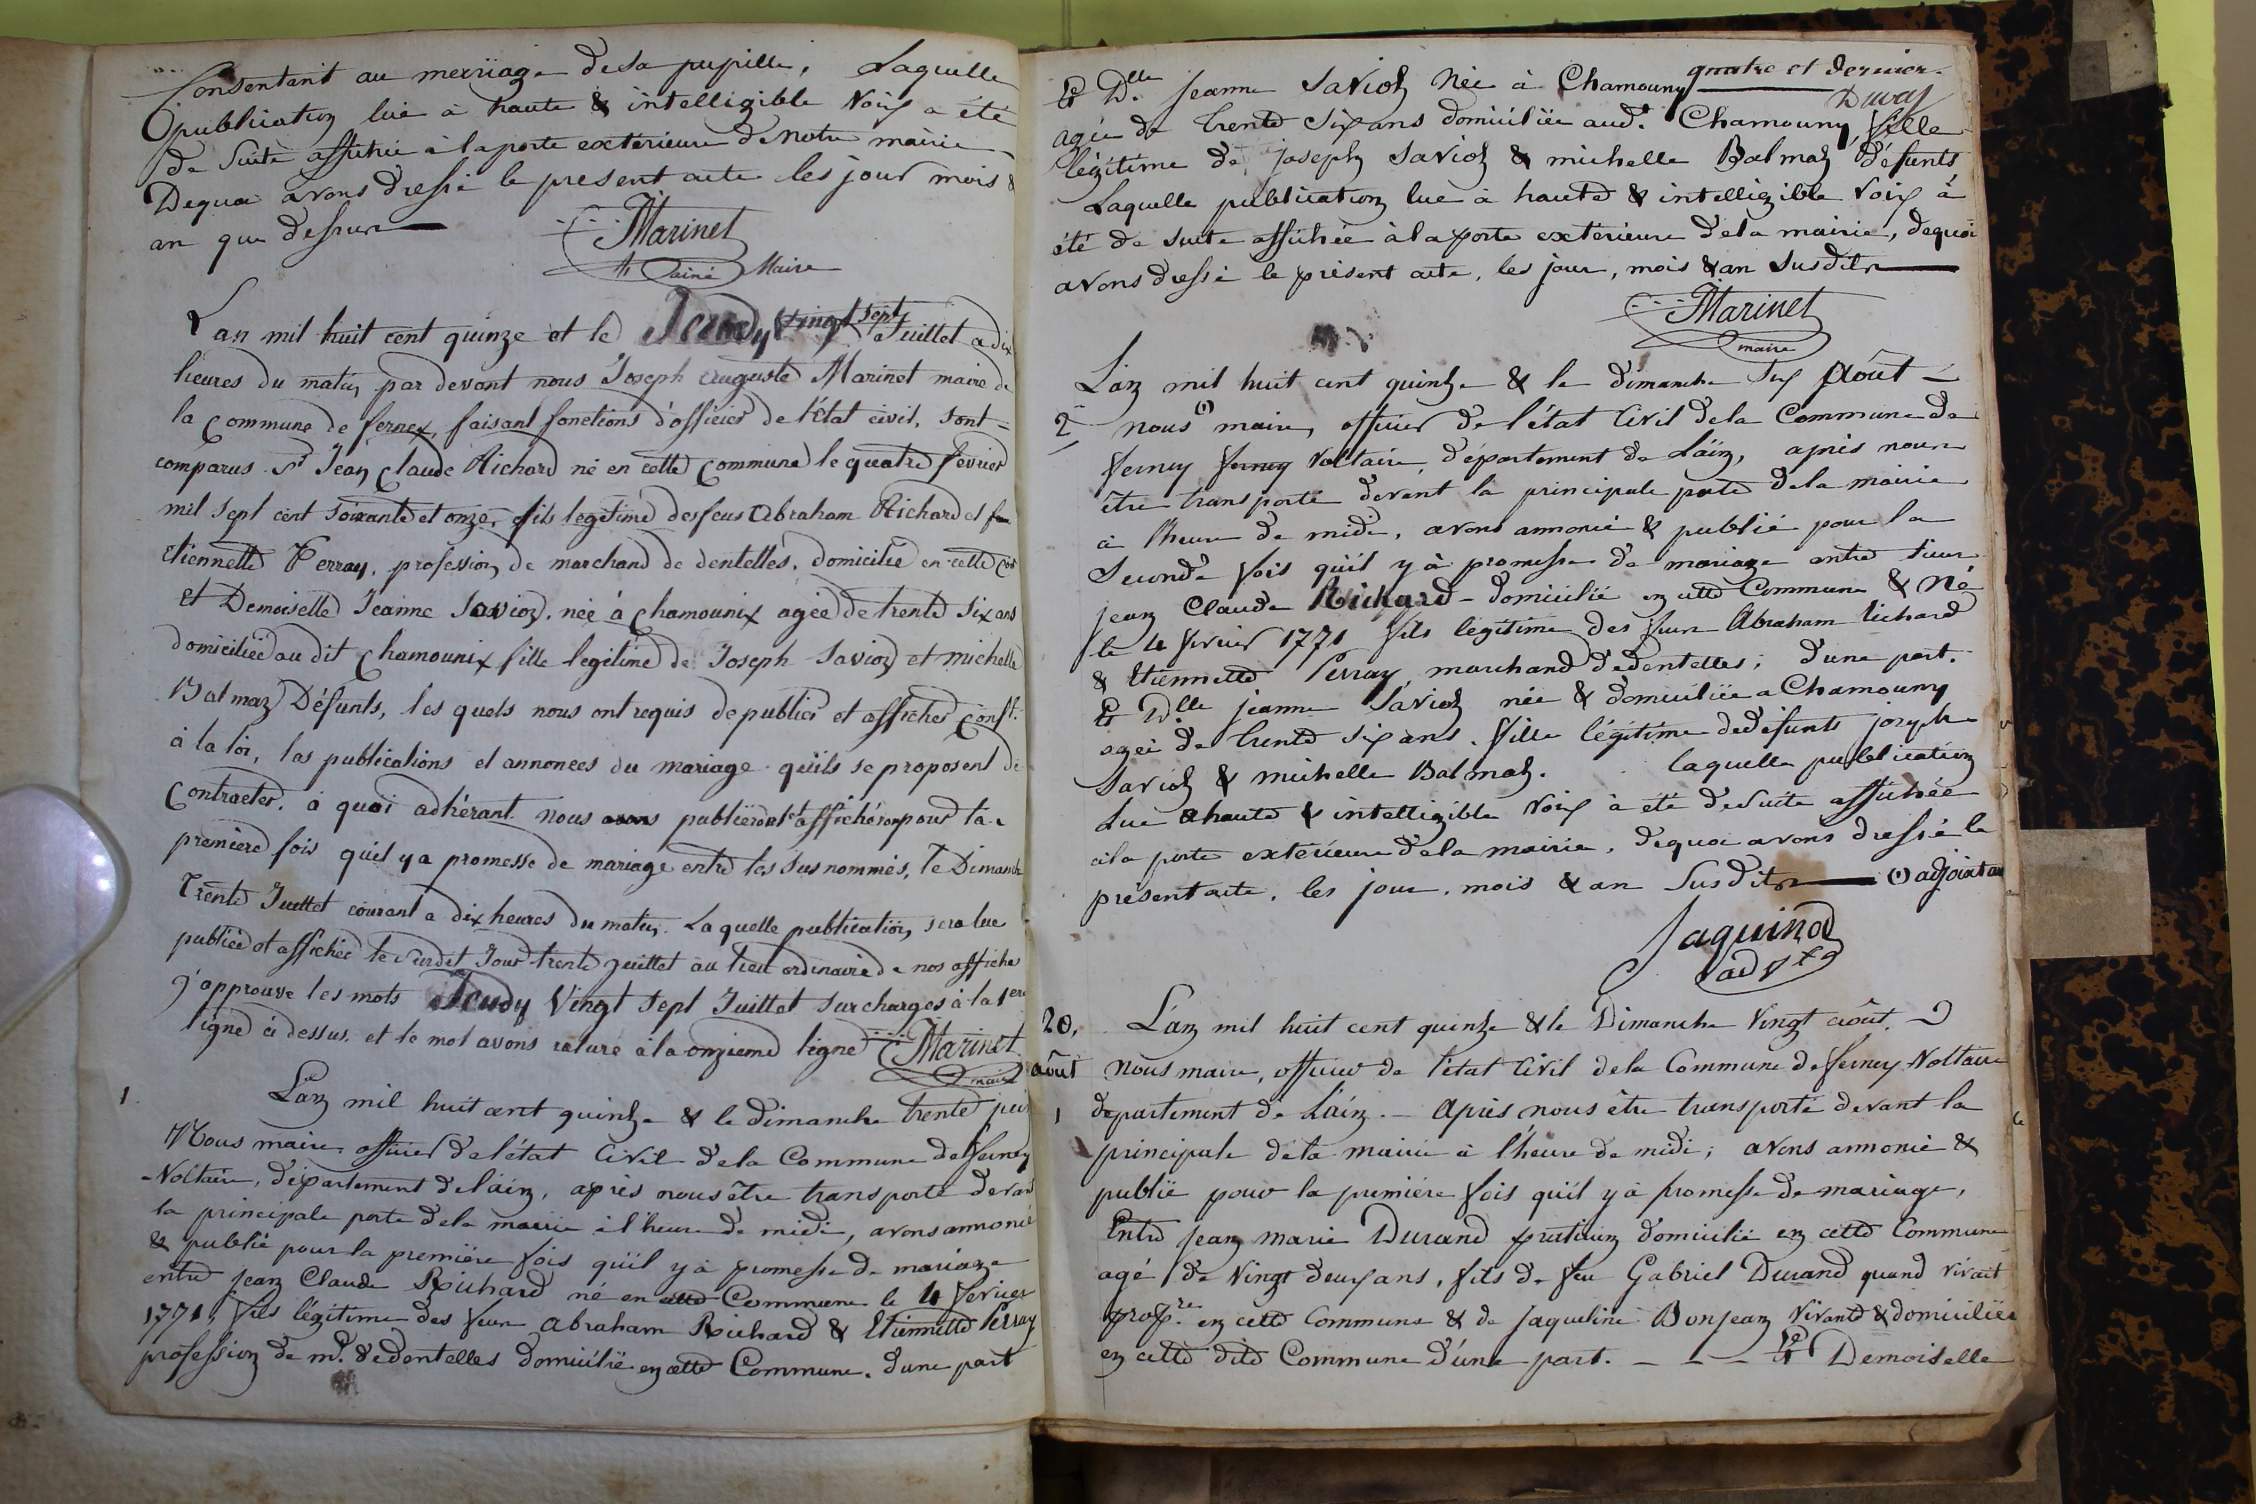 Consentent au merriage de sa pupille, Laquelle
publication lue à haute & intelligible Voix a été
de Suite affichée à la porte extérieure de Notre mairie
Dequoi avons dressé le present acte les jour mois &
an que dessus
Marinet
ainé Maire
Lan mil huit cent quinze et le Jeudy vingt sept Juillet a dix
heures du matin par devant nous Joseph auguste Marinet maire de
la Commune de fernex, faisant fonctions d'officier de l'État civil, sont =
comparus Sr Jean Claude Richard né en cette Commune le quatre fevrier
mil sept cent soixante et onze, fils legitime des feus Abraham Richard et feu
Etiennette Perray, profession de marchand de dentelles, domicilié en cette Cne
et Demoiselle Jeanne Savioz, née à Chamounix agée de trente six ans
domiciliée au dit Chamounix fille legitime de Joseph Savioz et michelle
Balmaz Défunts, les quels nous ont requis de publier et afficher Conft.
à la loi, les publications et annonces du mariage qu'ils se proposent de
Contracter, à quoi adhérant nous avons publieront afficheronpour la
premiere fois qu'il y a promesse de mariage entre les sus nommés, le Dimanche
trente Juillet courant a dix heures du matin. Laquelle publication, sera lue
publiée et affichée le Surdit Jour trente juillet au lieu ordinaire de nos affiches
J'approuve les mots Jeudy Vingt Sept Juillet Surchargés à la 1ere
ligne ci dessus, et le mot avons raturé à la onzieme ligne Marinet
maire
1. L'an mil huit cent quinze & le dimanche trente juil
Nous maire officier de l'état Civil dela Commune de ferney
-Voltaire, département de lain, après nous être transporté devant
la principale porte dela mairie à l'heure de midi, avons annoncé
& publié pour la premiere fois qu'il y à promesse de mariage
entre jean Claude Richard né en cette Commune le 4 fevrier
1771, fils légitime des feus abraham Richard & Etiennette Perray
profession de md. de dentelles domicilié en cette Commune. d'une part
quatre et dernier.
Duval
Et Dlle. jeanne Savioz Née à Chamouny
agée de trente Six ans domiciliée aud. Chamouny, fille
légitime de Joseph Savioz & michelle Balmaz défunts
Laquelle publication lue à haute & intelligible Voix à
été de suite affichée à la porte extérieure dela mairie, dequoi
avons dressé le présent acte, les jour, mois & an Susdits
Marinet
maire
L'an mil huit cent quinze & le dimanche Six Août
2. nous (1) maire, officier de l'état Civil dela Commune de
ferney ferney Voltaire, département de L'ain, après nous
être transporté devant la principale porte dela mairie
à l'heure de midi, avons annoncé & publié pour la
Seconde fois qu'il y à promesse de mariage entre Sieur
jean Claude Richard - domicilié en cette Commune & Né
le 4 fevrier 1771 fils légitime des feus Abraham Richard
& Etiennette Perray, marchand de dentelles; d'une part.
Et Dlle jeanne Savioz née & domiciliée a Chamouny
agée de trente six ans. fille légitime de défunts joseph
Savioz & michelle Balmaz. laquelle publication
Lue à haute & intelligible Voix à été de Suite affichée
à la porte extérieure dela mairie, dequoi avons dressé le
présent acte, les jour, mois & an Susdits (1) adjoint au
Jaquinod
adjt
20, L'an mil huit cent quinze & le Dimanche Vingt août.
août Nous maire, officier de l'état Civil dela Commune de ferney Voltaire
1 département de L'ain. - Après nous être transporté devant la
principale dela mairie à l'heure de midi; avons annoncé &
publié pour la premiére fois qu'il y à promesse de mariage,
Entre jean marie Durand praticien domicilié en cette Commune
agé de Vingt deux ans, fils de feu Gabriel Durand quand vivait
propre. en cette Commune & de jaqueline Bonjean Vivante & domiciliée
en cette dite Commune d'une part. - - - Et Demoiselle